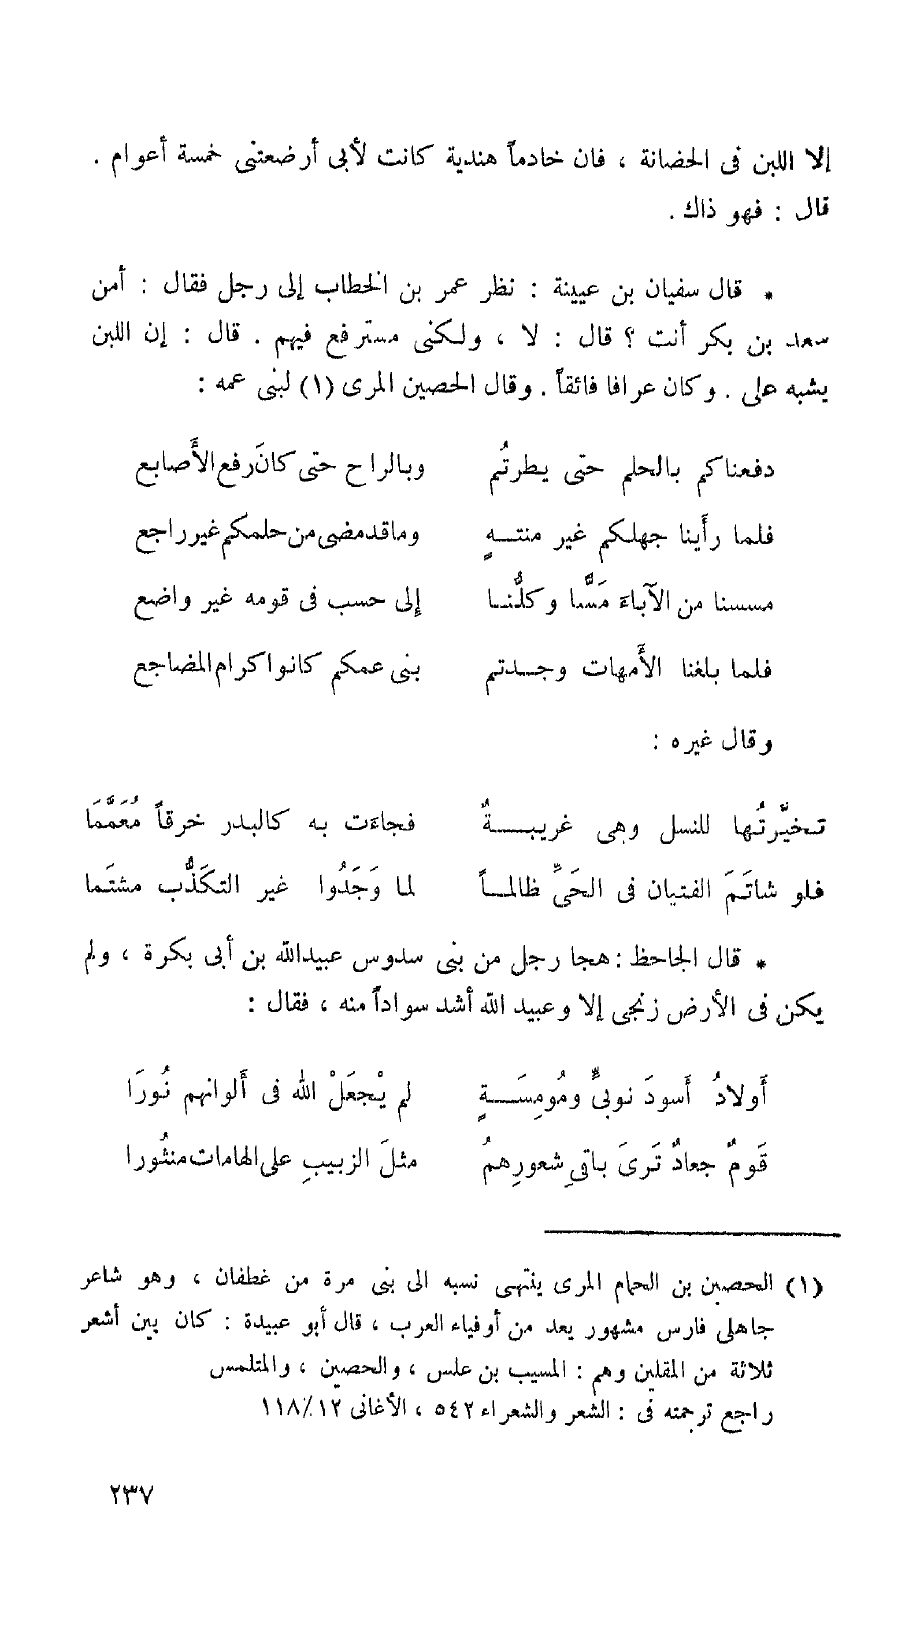 إلا اللبن فى الحضانة ، فان خادماً هندية كانت لأبى أرضعتنى خمسة أعوام .
قال : فهو ذاك .
* قال سفيان بن عيينة : نظر عمر بن الخطاب إلى رجل فقال : أمن
سعد بن بكر أنت ؟ قال : لا ، ولكنى مسترفع فيهم . قال : إن اللبن
يشبه على . وكان عرافا فائقاً . وقال الحصين المرى (١) لبنى عمه :
دفعناكم بالحلم حتى يطرتُم وبالراح حتى كانَ رفع الأَصابع
فلما رأَينا جهلكم غير منتــهٍ وما قد مضى من حلمكم غير راجع
مسسنا من الآباءَ مَسًّا وكلُّنـا إلى حسب فى قومه غير واضع
فلما بلغنا الأَمهات وجــدتم بنى عمكم كانوا كرام المضاجع
وقال غيره :
تـخيَّرتُها للنسل وهى غريبــةٌ فجاءَت به كالبدر خرقاً مُعَمَّمَا
فلو شاتَمَ الفتيان فى الحَىِّ ظالمــاً لما وَجَدُوا غير التكَذُّب مشتَما
* قال الجاحظ : هجا رجل من بنى سدوس عبيدالله بن أبى بكرة ، ولم
يكن فى الأرض زنجى إلا وعبيد الله أشد سواداً منه ، فقال :
أَولادُ أَسودَ نوبىٍّ ومُومِسَــةٍ لم يْجعَلْ الله فى أَلوانهم نُورَا
قَومٌ جعادٌ تَرىَ باقىِ شعورِهمُ مثلَ الزبيبِ على الهامات منثُورا
(١) الحصين بن الحمام المرى ينتهى نسبه الى بنى مرة من غطفان ، وهو شاعر
جاهلى فارس مشهور يعد من أوفياء العرب ، قال أبو عبيدة : كان بين أشعر
ثلاثة من المقلين وهم : المسيب بن علس ، والحصين ، والمتلمس
راجع ترجمته فى : الشعر والشعراء ٥٤٢ ، الأغانى ١٢/ ١١٨
٢٣٧